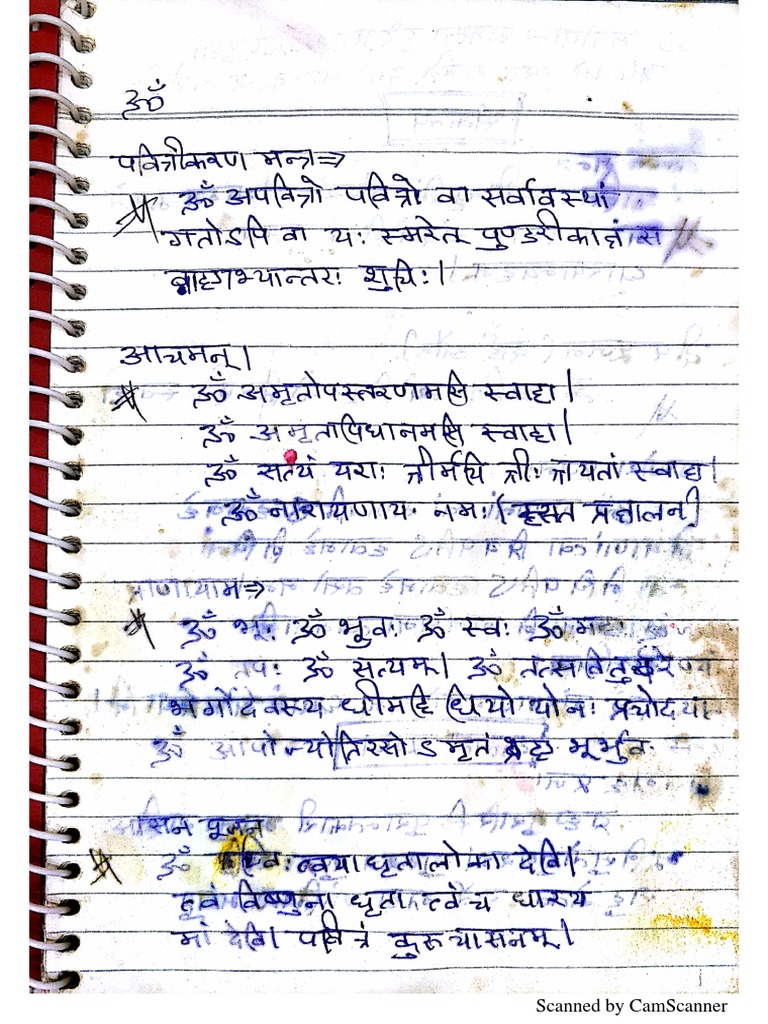 ॐ
पवित्रीकरण मन्त्र⇒
ॐ अपवित्रो पवित्रो वा सर्वावस्थां
गतोऽपि वा यः स्मरेत् पुण्डरीकाक्षं स
बाह्याभ्यान्तरः शुचिः।
आचमन्।
ॐ अमृतोपस्तरणमसि स्वाहा।
ॐ अमृतापिधानमसि स्वाहा।
ॐ सत्यं यशः श्रीर्मयि श्रीः श्रयतां स्वाहा।
ॐ नारायणायः नमः (हस्त प्रक्षालन)
प्राणायाम⇒
ॐ भूः ॐ भुवः ॐ स्वः ॐ महः
ॐ तपः ॐ सत्यम्। ॐ
भर्गोदेवस्य धीमहि धियो योनः प्रचोदया
ॐ आपो ज्योतिरसोऽमृतं ब्रह्म भूर्भुवः
आसन पूजन
ॐ त्वया धृतालोका देवि।
त्वं विष्णुना धृता त्वं च धारय
मां देवि। पवित्रं कुरु चासनम्।
Scanned by CamScanner